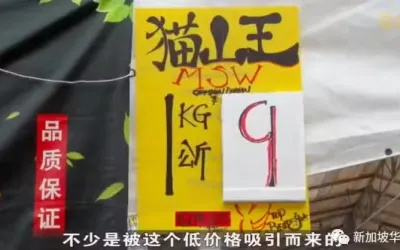 猫山王
MSW
1
KG
公斤
9
品质保证
不少是被这个低价格吸引而来的
新加坡华